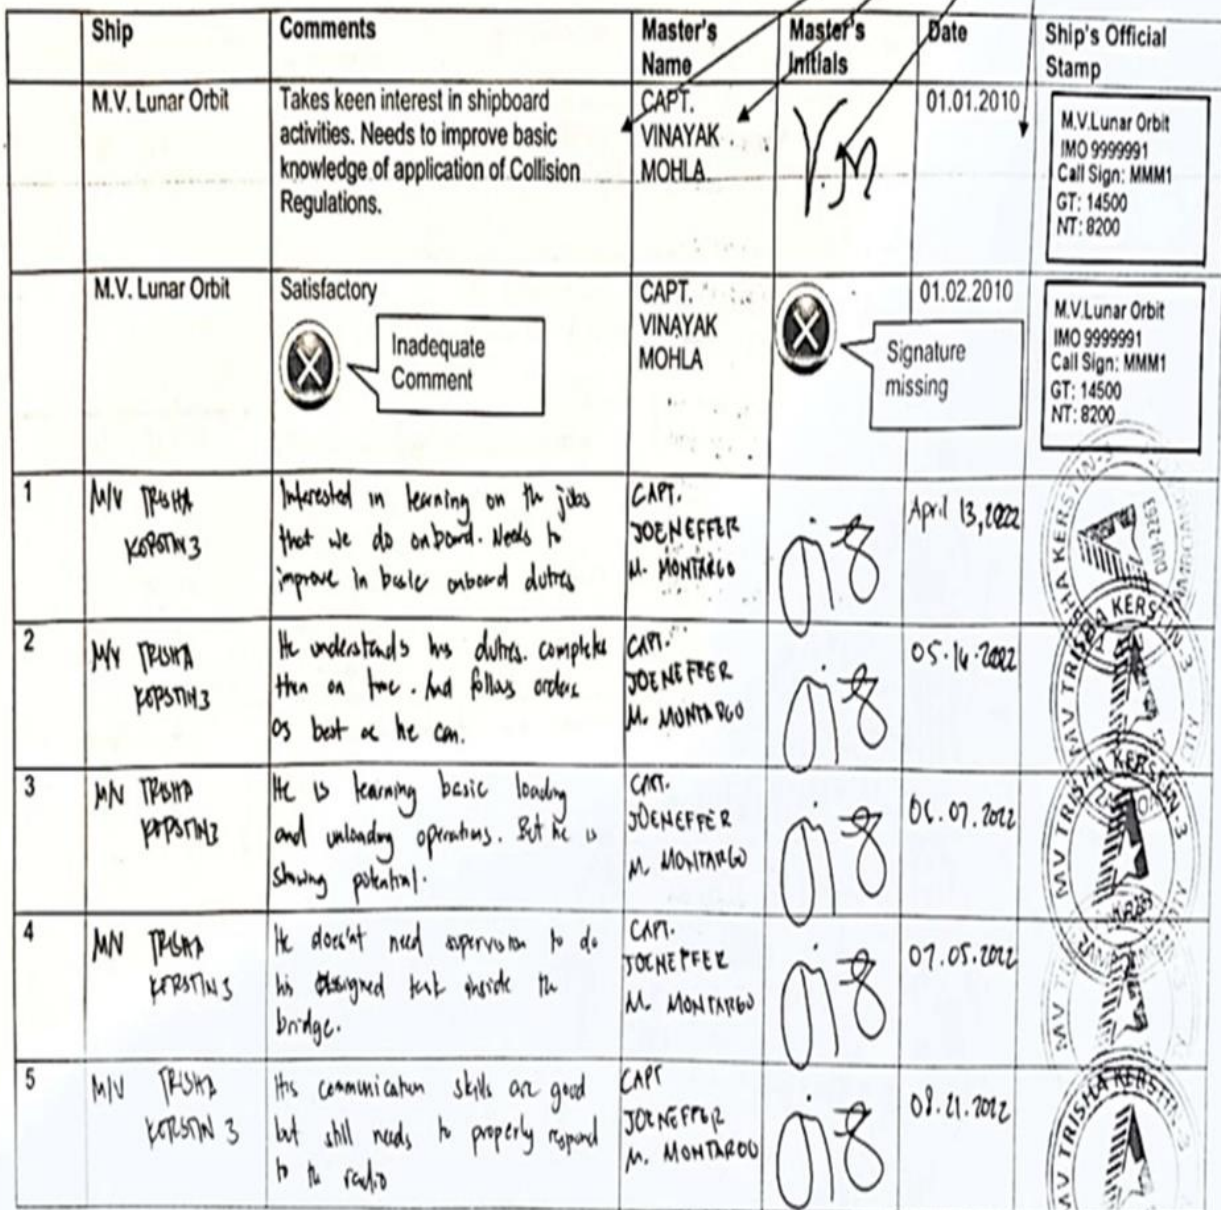 Ship Comments Master's Name Master's Initials Date Ship's Official Stamp
M.V. Lunar Orbit
Takes keen interest in shipboard
activities. Needs to improve basic
knowledge of application of Collision
Regulations.
CAPT.
VINAYAK
MOHLA
V.M
01.01.2010
M.V.Lunar Orbit
IMO 9999991
Call Sign: MMM1
GT: 14500
NT: 8200
M.V. Lunar Orbit
Satisfactory
X
Inadequate
Comment
CAPT.
VINAYAK
MOHLA
X
Signature
missing
01.02.2010
M.V.Lunar Orbit
IMO 9999991
Call Sign: MMM1
GT: 14500
NT: 8200
1
M/V TRISHA
KERSTIN 3
Interested in learning on the jobs
that we do onboard. Needs to
improve in basic onboard duties
CAPT.
JOENEFFER
M. MONTARGO
April 13, 2022
2
M/V TRISHA
KERSTIN 3
He understands his duties. completes
them on time. And follows orders
as best as he can.
CAPT.
JOENEFFER
M. MONTARGO
05.16.2022
MV TRISHA KERSTIN-3
3
M/V TRISHA
KERSTIN 3
He is learning basic loading
and unloading operations. But he is
showing potential.
CAPT.
JOENEFFER
M. MONTARGO
06.07.2022
MV TRISHA KERSTIN-3
4
M/V TRISHA
KERSTIN 3
He does'nt need supervision to do
his assigned task inside the
bridge.
CAPT.
JOENEFFER
M. MONTARGO
07.05.2022
5
M/V TRISHA
KERSTIN 3
His communication skills are good
but still needs to properly respond
to the radio
CAPT
JOENEFFER
M. MONTARGO
08.21.2022
MV TRISHA KERSTIN-3